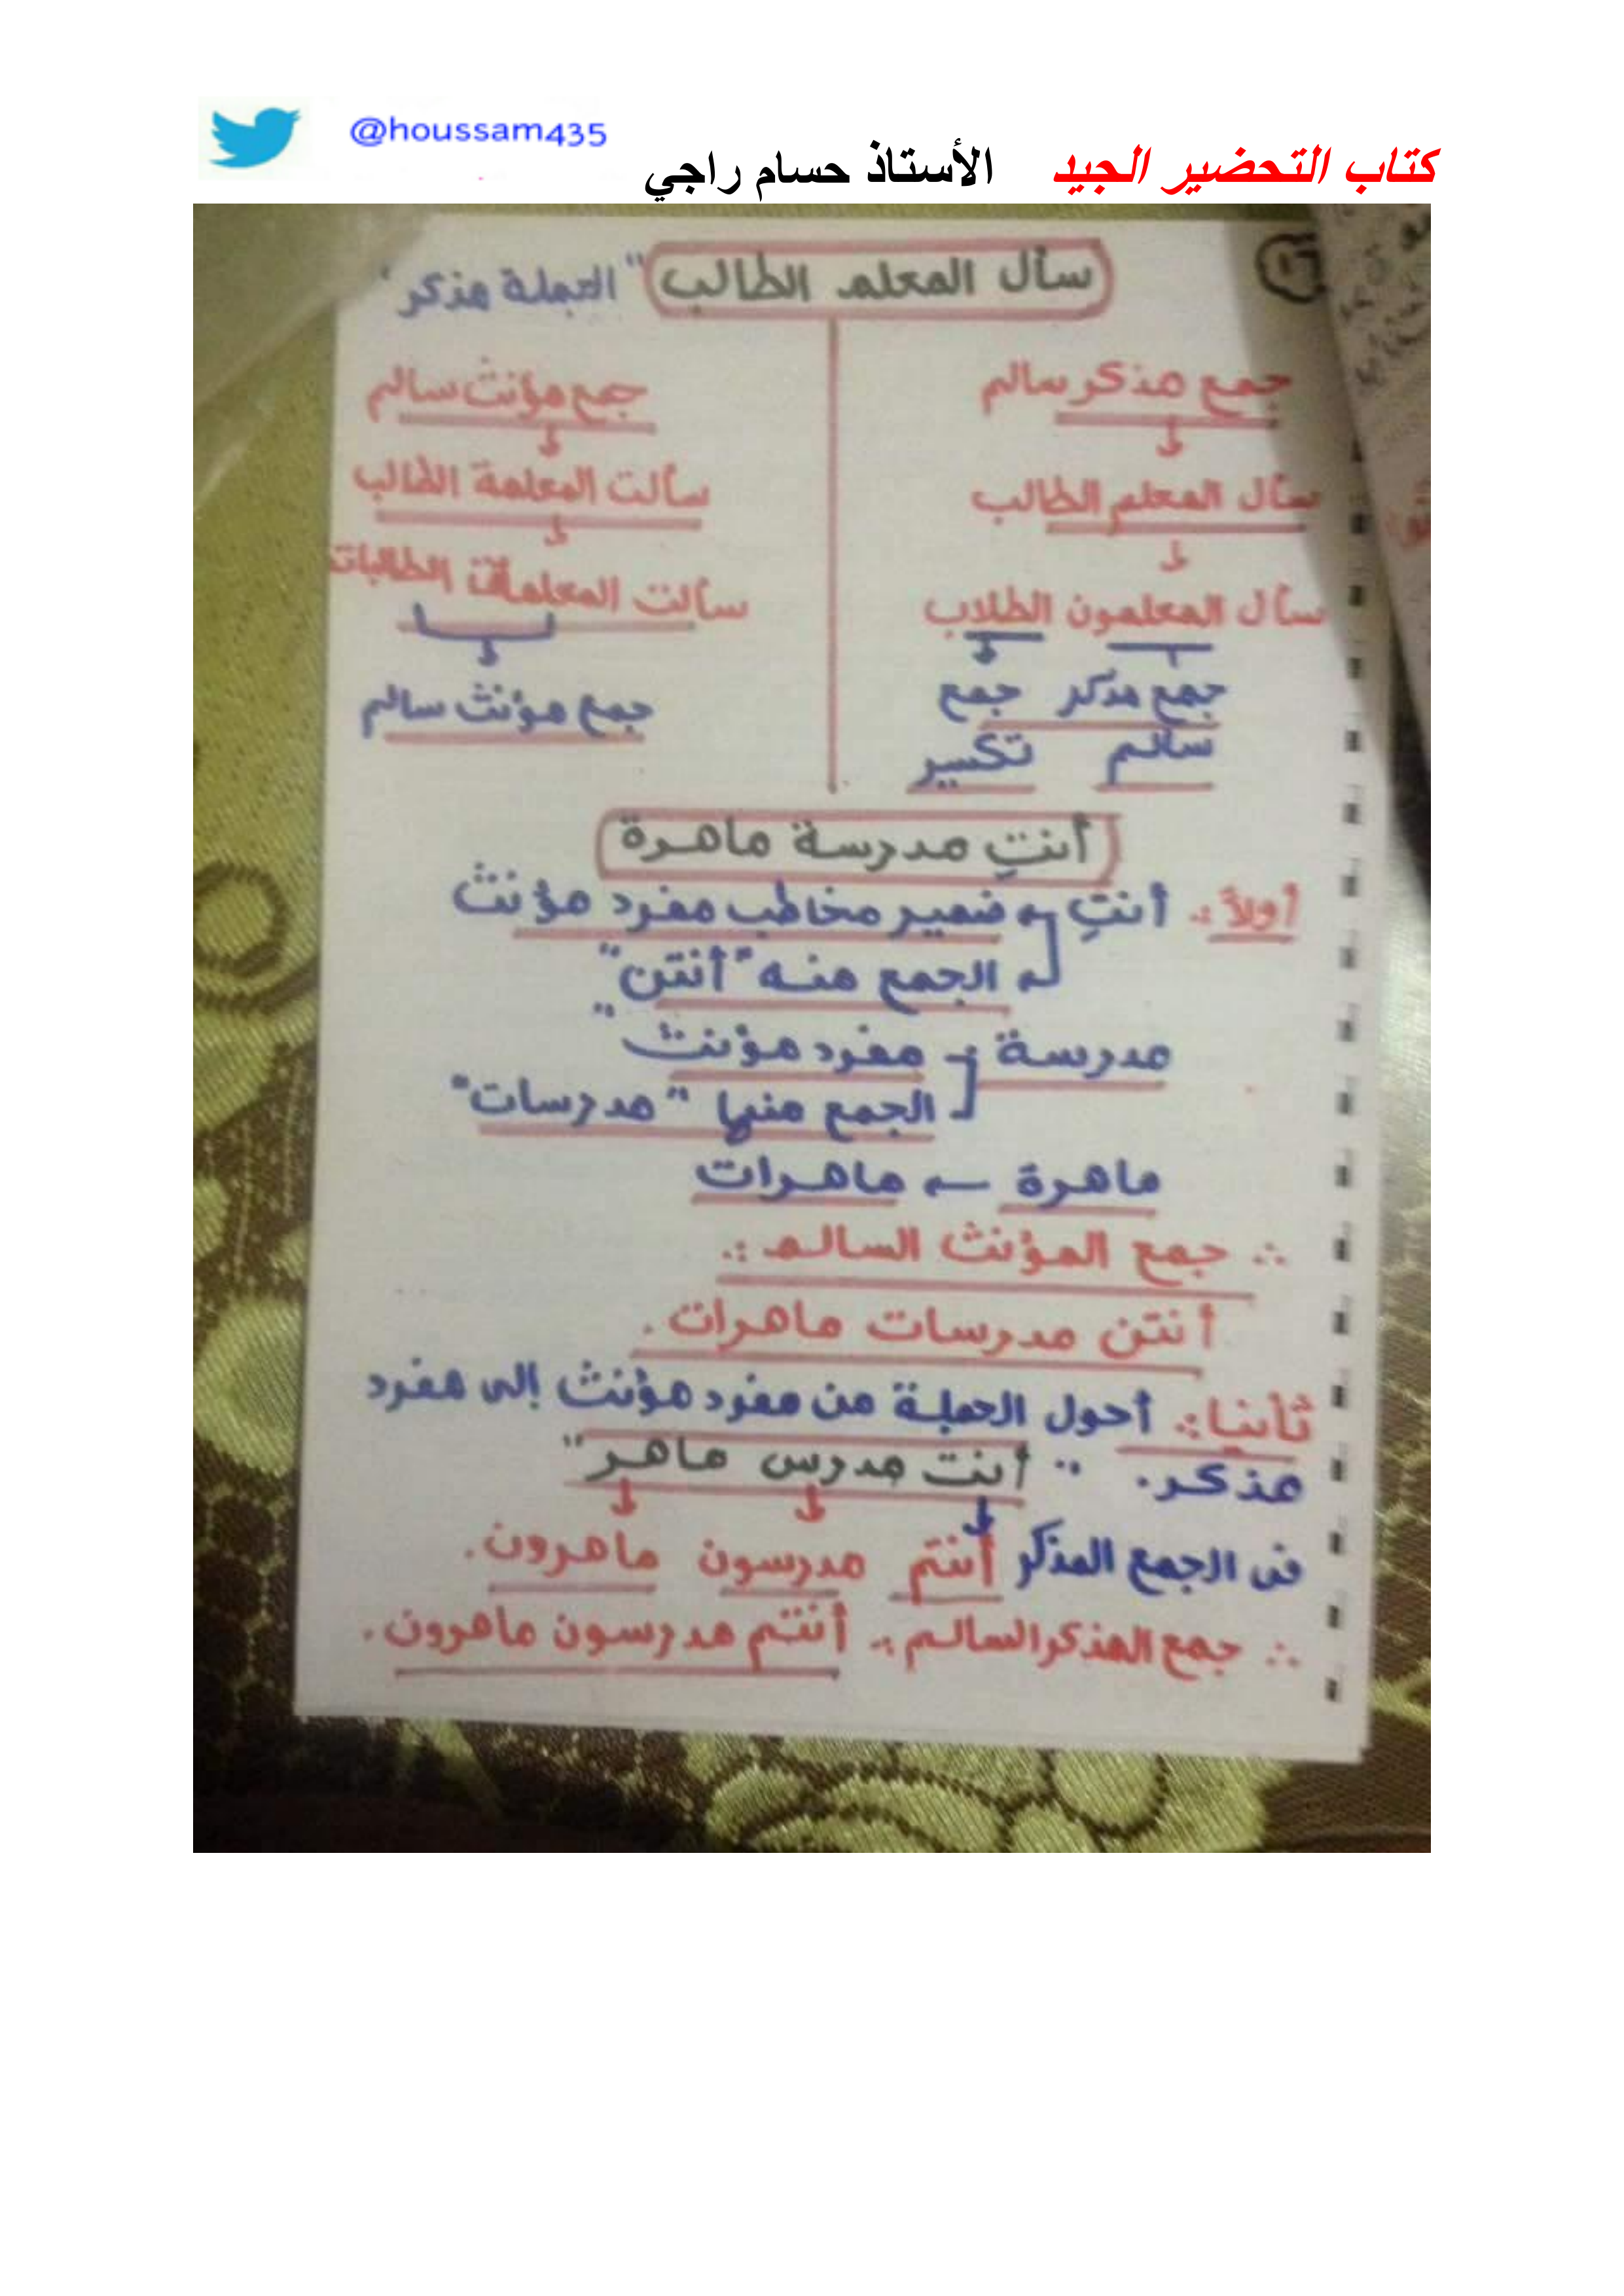 @houssam435
كتاب التحضير الجيد الأستاذ حسام راجي
سأل المعلم الطالب "الجملة مذكر"
جمع مذكر سالم
سأل المعلم الطالب
سأل المعلمون الطلاب
جمع مذكر جمع
سالم تكسير
جمع مؤنث سالم
سألت المعلمة الطالب
سألت المعلمات الطالبات
جمع مؤنث سالم
أنتِ مدرسة ماهرة
أولاً :. أنتِ ضمير مخاطب مفرد مؤنث
الجمع منه "أنتن"
مدرسة مفرد مؤنث"
الجمع منها "مدرسات"
ماهرة ← ماهرات
∴ جمع المؤنث السالم :.
أنتن مدرسات ماهرات.
ثانيا :. أحول الجملة من مفرد مؤنث إلى مفرد
مذكر. "أنت مدرس ماهر"
فى الجمع المذكر أنتم مدرسون ماهرون.
∴ جمع المذكر السالم :. أنتم مدرسون ماهرون.